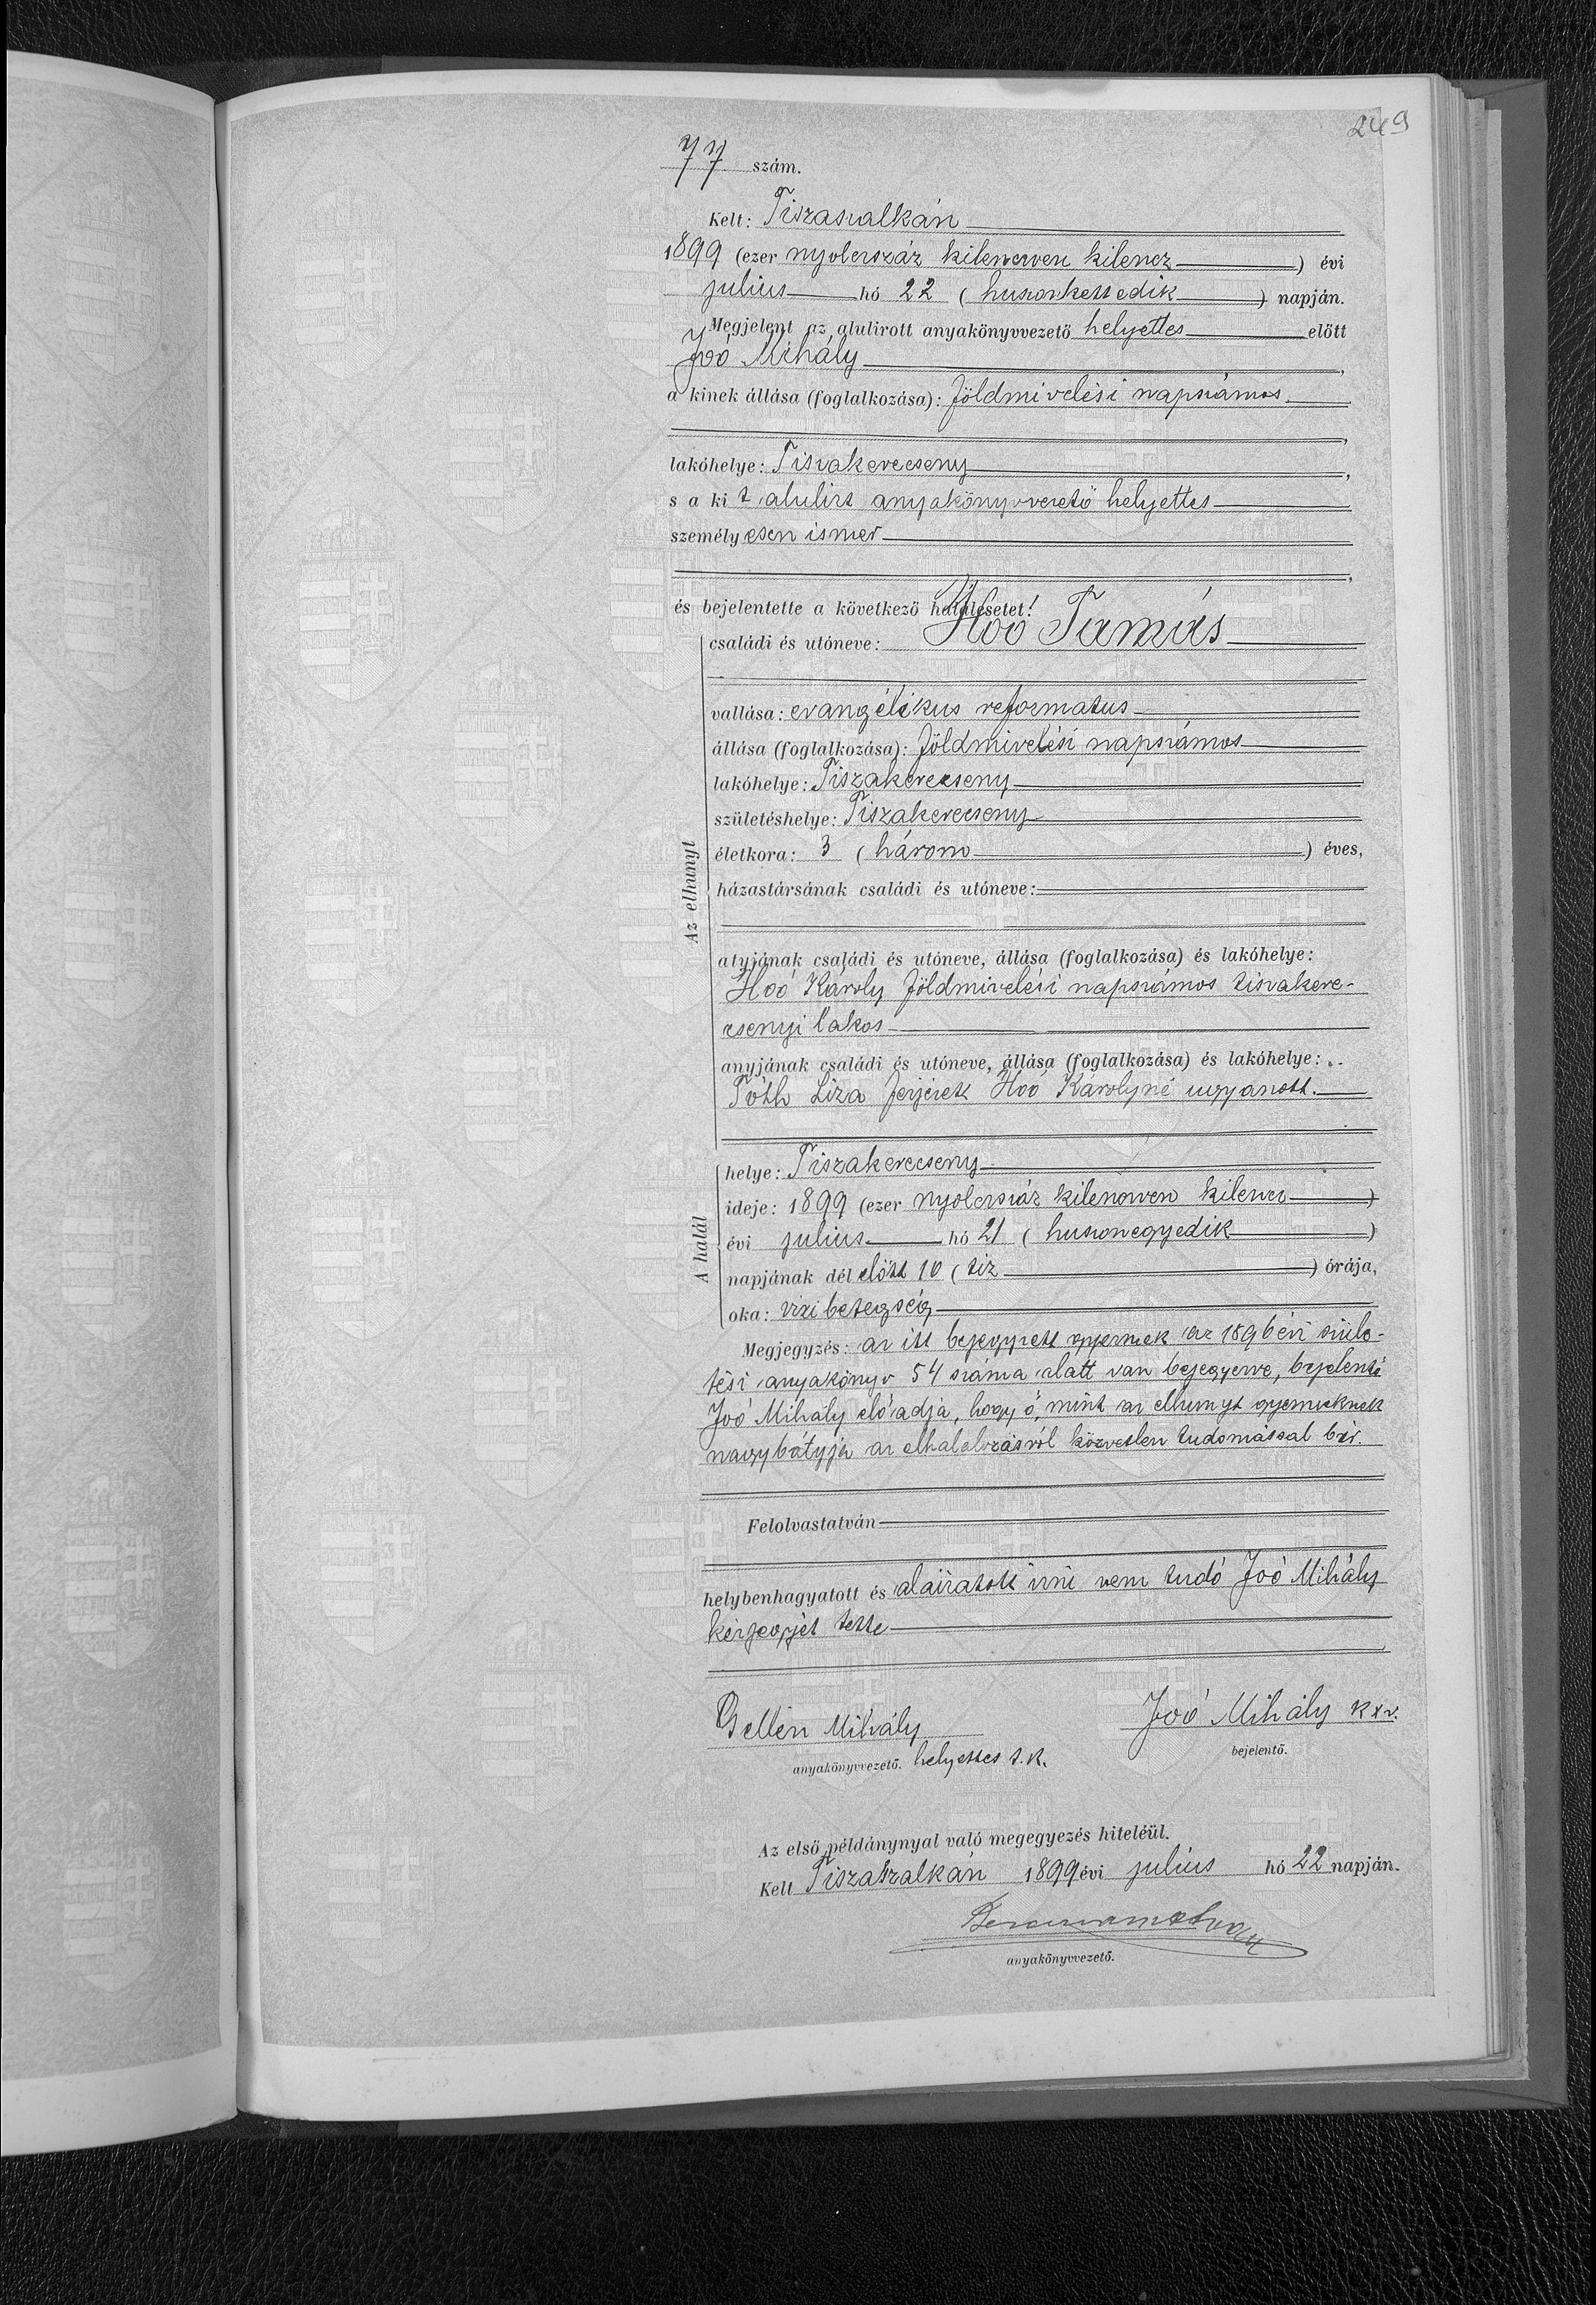 249
77 szám.
Kelt: Tiszaszalkán
1899 (ezer nyolcszáz kilencven kilencz) évi
julius hó 22 (huszonkettedik) napján.
Megjelent az alulirott anyakönyvvezető helyettes előtt
Joó Mihály,
a kinek állása (foglalkozása): földmivelési napszámos,
lakóhelye: Tiszakerecseny,
s a kit alulirt anyakönyvvezető helyettes
személyesen ismer,
és bejelentette a következő halálesetet!
Az elhunyt
családi és utóneve: Hoó Tamás
vallása: evangélikus reformatus
állása (foglalkozása): földmivelési napszámos
lakóhelye: Tiszakerecseny
születéshelye: Tiszakerecseny
életkora: 3 (három) éves,
házastársának családi és utóneve:
atyjának családi és utóneve, állása (foglalkozása) és lakóhelye:
Hoó Károly földmivelési napszámos tiszakere-
csenyi lakos
anyjának családi és utóneve, állása (foglalkozása) és lakóhelye:
Tóth Liza férjezett Hoó Károlyné ugyanott.
A halál
helye: Tiszakerecseny
ideje: 1899 (ezer nyolcszáz kilencven kilencz)
évi julius hó 21 (huszonegyedik)
napjának dél előtt 10 (tiz) órája,
oka: vizi betegség
Megjegyzés: az itt bejegyzett gyermek az 1896 évi szüle-
tési anyakönyv 54 száma alatt van bejegyezve, bejelentő
Joó Mihály előadja, hogy ő, mint az elhunyt gyermeknek
nagybátyja az elhalálozásról közvetlen tudomással bir.
Felolvastatván
helybenhagyatott és aláiratott irni nem tudó Joó Mihály
kézjegyét tette
Gellén Mihály
anyakönyvvezető. helyettes s.k.
Joó Mihály k x v.
bejelentő.
Az első példánynyal való megegyezés hiteléül.
Kelt Tiszaszalkán 1899 évi julius hó 22 napján.
anyakönyvvezető.